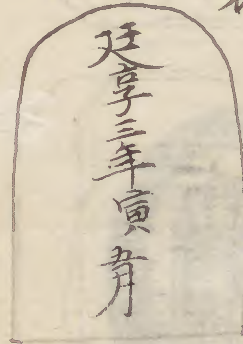 延享三年寅五月